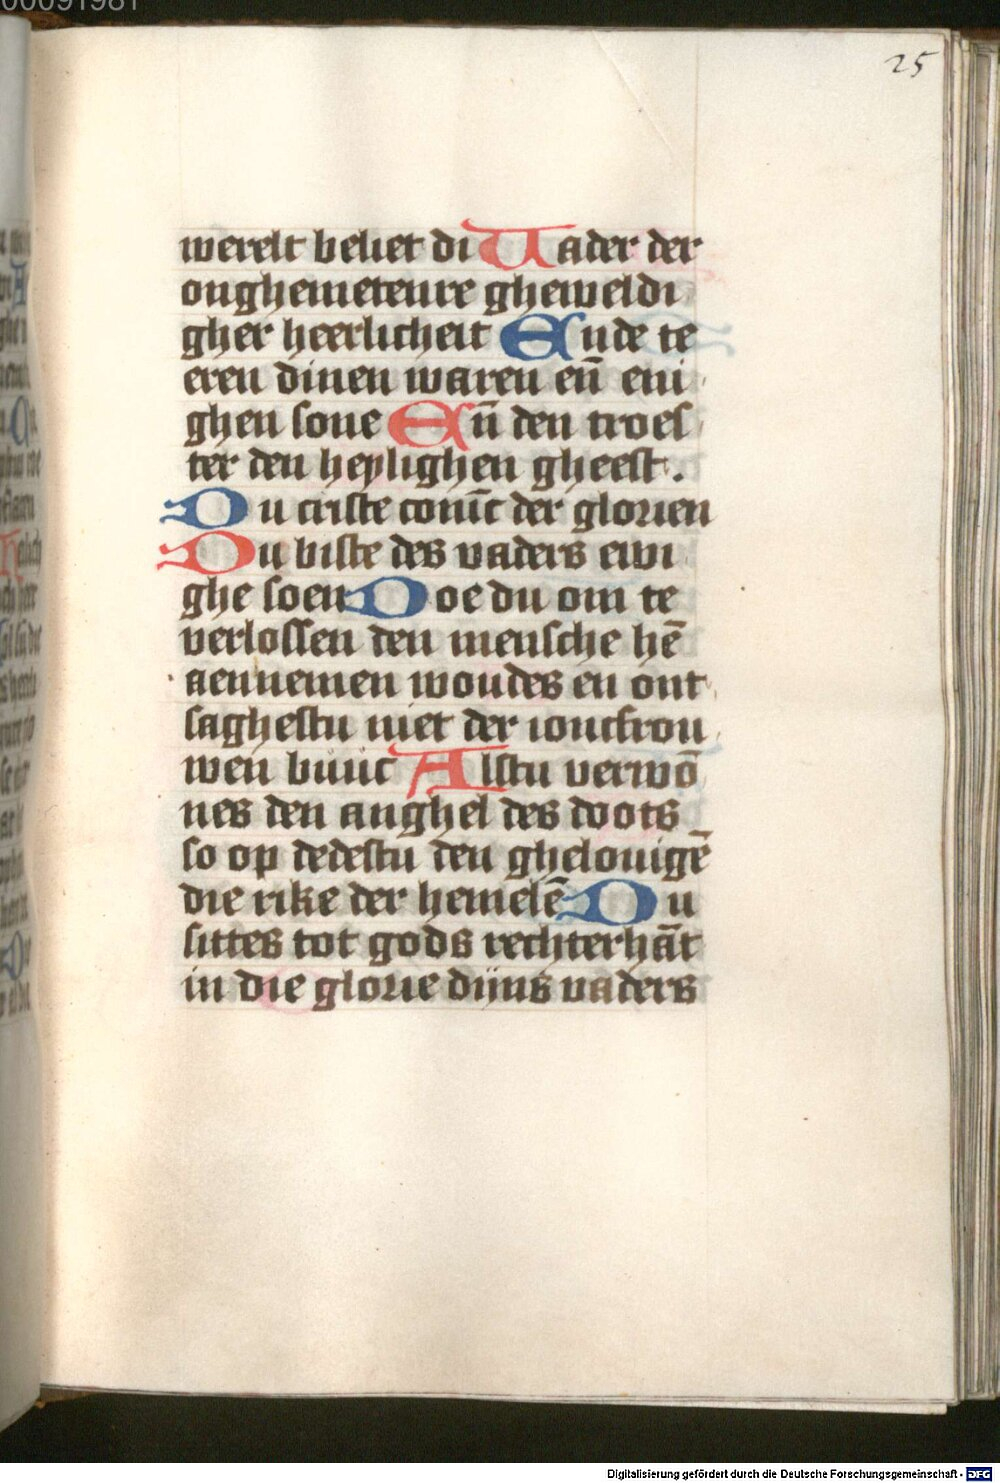 00091981
25
werelt beliet di Uader der
onghemetenre gheweldi
gher heerlicheit Ende te
eren dinen waren en̄ eni
ghen sone En̄ den troes
ter den heylighen gheest.
Du criste coninc der glorien
Du biste des vaders ewi
ghe soen Doe du om te
verlossen den mensche hē
aennemen woudes en ont
saghestu niet der ioncfrou
wen buuc Alstu verwō
nes den anghel des doots
so op dedestu den ghelouigē
die rike der hemelē Du
sittes tot gods rechterhāt
in die glorie dijns vaders
Digitalisierung gefördert durch die Deutsche Forschungsgemeinschaft - DFG